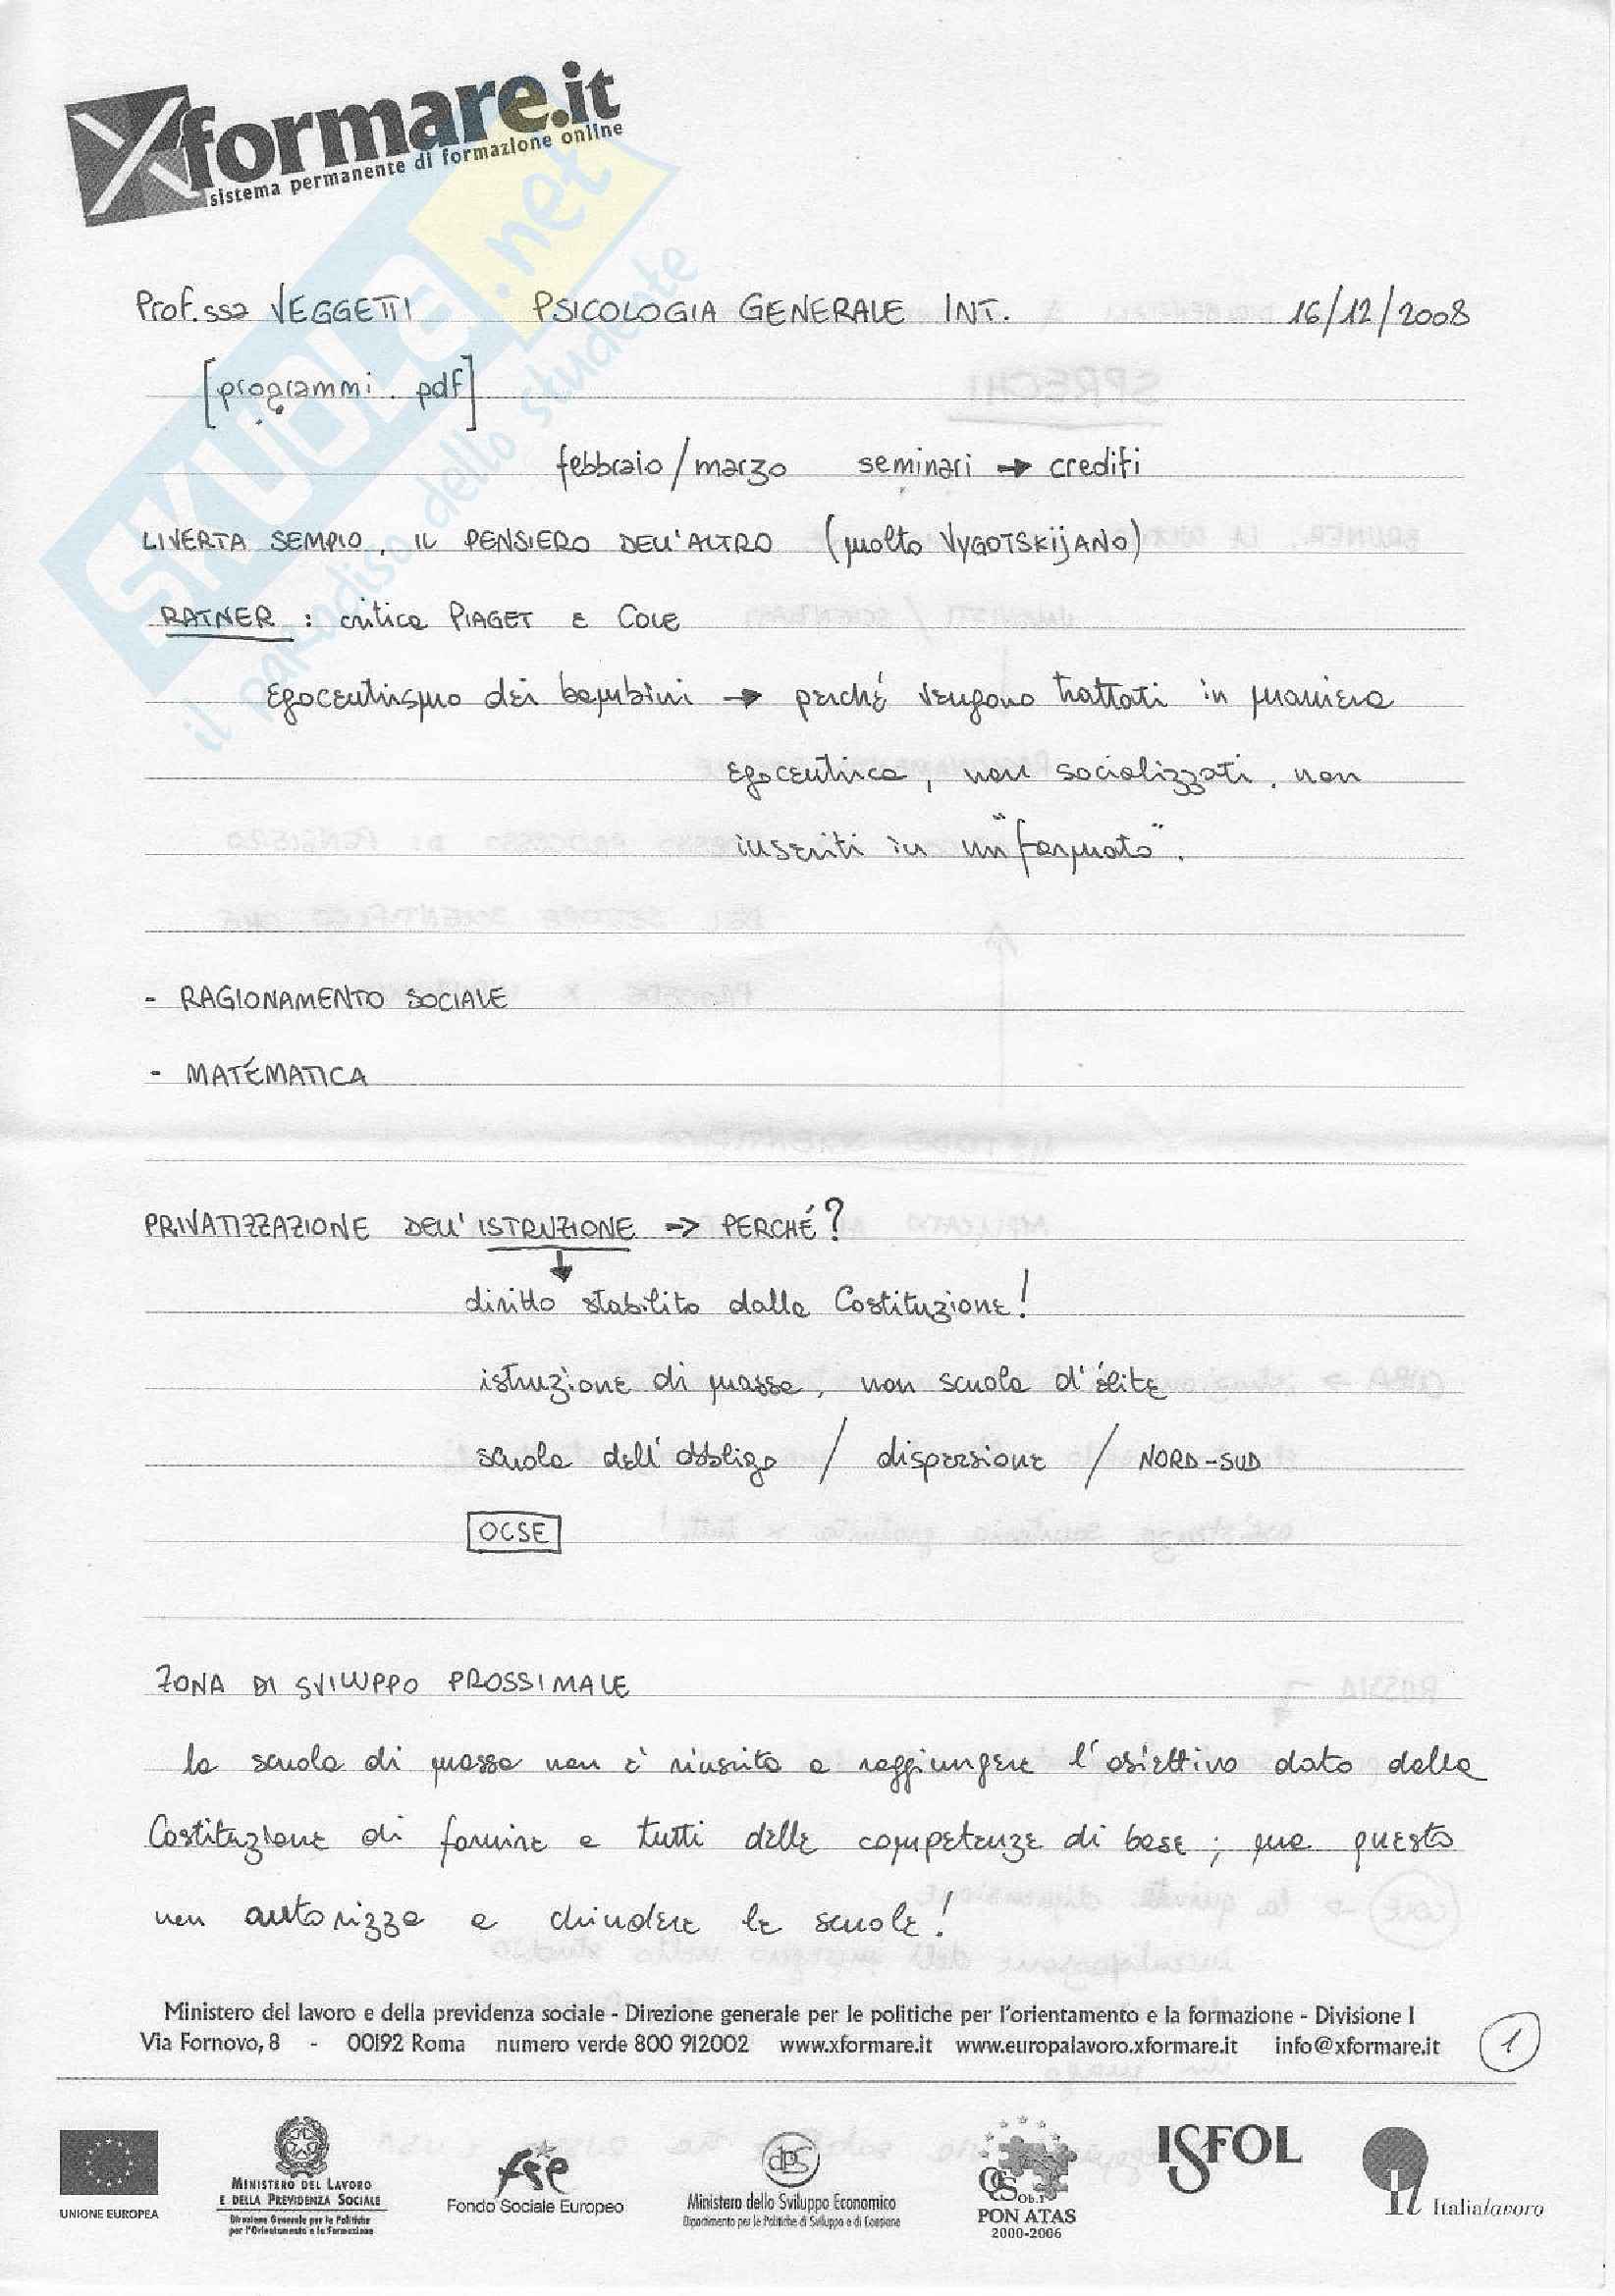 Xformare.it
sistema permanente di formazione online
SKUOLA.net
il paradiso dello studente
Prof.ssa VEGGETTI PSICOLOGIA GENERALE INT. 16/12/2008
[programmi.pdf]
febbraio/marzo seminari → crediti
LIVERTA SEMPIO, IL PENSIERO DELL'ALTRO (molto VYGOTSKIJANO)
RATNER : critica PIAGET e COLE
Egocentrismo dei bambini → perché vengono trattati in maniera
egocentrica, non socializzati, non
inseriti in un "formato".
- RAGIONAMENTO SOCIALE
- MATEMATICA
PRIVATIZZAZIONE DELL'ISTRUZIONE → PERCHÉ?
↓
diritto stabilito dalla Costituzione!
istruzione di massa, non scuola d'élite
scuola dell'obbligo / dispersione / NORD-SUD
OCSE
ZONA DI SVILUPPO PROSSIMALE
la scuola di massa non è riuscita a raggiungere l'obiettivo dato dalla
Costituzione di fornire a tutti delle competenze di base; ma questo
non autorizza a chiudere le scuole!
Ministero del lavoro e della previdenza sociale - Direzione generale per le politiche per l'orientamento e la formazione - Divisione I
Via Fornovo, 8 - 00192 Roma numero verde 800 912002 www.xformare.it www.europalavoro.xformare.it info@xformare.it
1
UNIONE EUROPEA
MINISTERO DEL LAVORO
E DELLA PREVIDENZA SOCIALE
Direzione Generale per le Politiche
per l'Orientamento e la Formazione
fse
Fondo Sociale Europeo
dps
Ministero dello Sviluppo Economico
Dipartimento per le Politiche di Sviluppo e di Coesione
QCS Ob.1
PON ATAS
2000-2006
ISFOL
Italialavoro